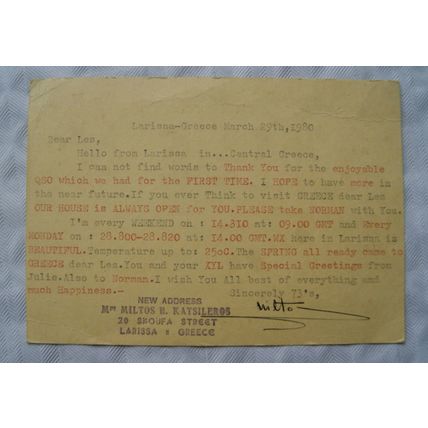 Larissa-Greece March 29th,1980
Dear Les,
Hello from Larissa in...Central Greece,
I can not find words to Thank You for the enjoyable
QSO which we had for the FIRST TIME. I HOPE to have more in
the near future.If you ever Think to visit GREECE dear Les
OUR HOUSE is ALWAYS OPEN for YOU.PLEASE take NORMAN with You.
I'm every WEEKEND on : 14.310 at: 09.00 GMT and Every
MONDAY on : 28.800-28.820 at: 14.00 GMT.WX here in Larissa is
BEAUTIFUL.Temperature up to: 25oC. The SPRING all ready came to
GREECE dear Les.You and your XYL have Special Greetings from
Julie.Also to Norman.I wish You All best of everything and
much Happiness.- Sincerely 73's,
NEW ADDRESS
Mr MILTOS H. KATSILEROS
20 SKOUFA STREET
LARISSA = GREECE
Milto